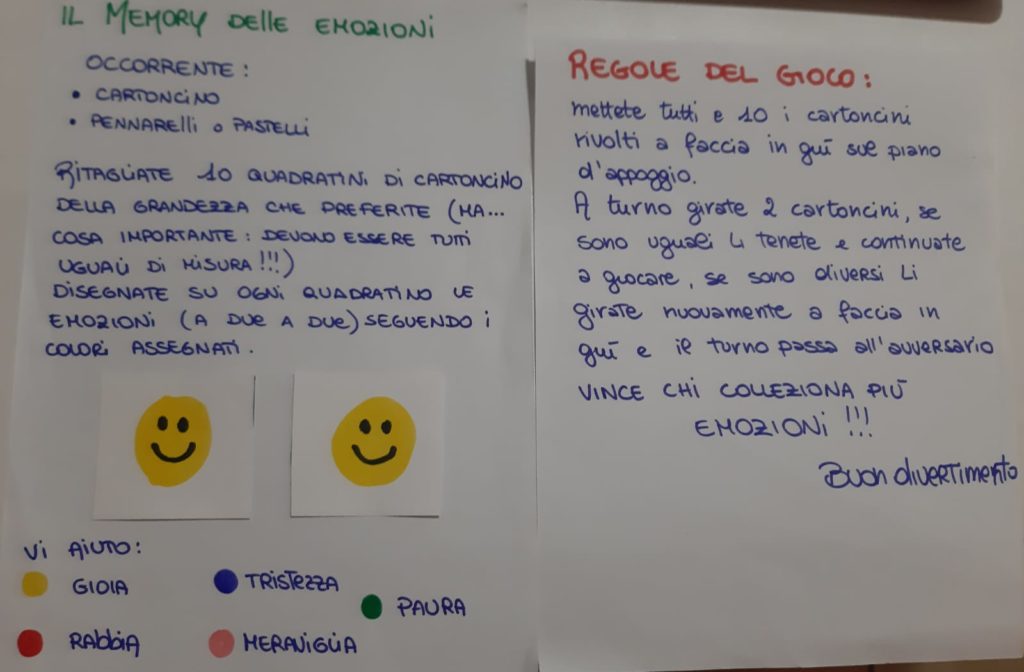 IL MEMORY DELLE EMOZIONI
OCCORRENTE:
• CARTONCINO
• PENNARELLI O PASTELLI
RITAGLIATE 10 QUADRATINI DI CARTONCINO
DELLA GRANDEZZA CHE PREFERITE (MA...
COSA IMPORTANTE: DEVONO ESSERE TUTTI
UGUALI DI MISURA!!!)
DISEGNATE SU OGNI QUADRATINO LE
EMOZIONI (A DUE A DUE) SEGUENDO I
COLORI ASSEGNATI.
VI AIUTO:
GIOIA
TRISTEZZA
PAURA
RABBIA
MERAVIGLIA
REGOLE DEL GIOCO:
mettete tutti e 10 i cartoncini
rivolti a faccia in giù sul piano
d'appoggio.
A turno girate 2 cartoncini, se
sono uguali li tenete e continuate
a giocare, se sono diversi li
girate nuovamente a faccia in
giù e il turno passa all'avversario
VINCE CHI COLLEZIONA PIÙ
EMOZIONI!!!
Buon divertimento